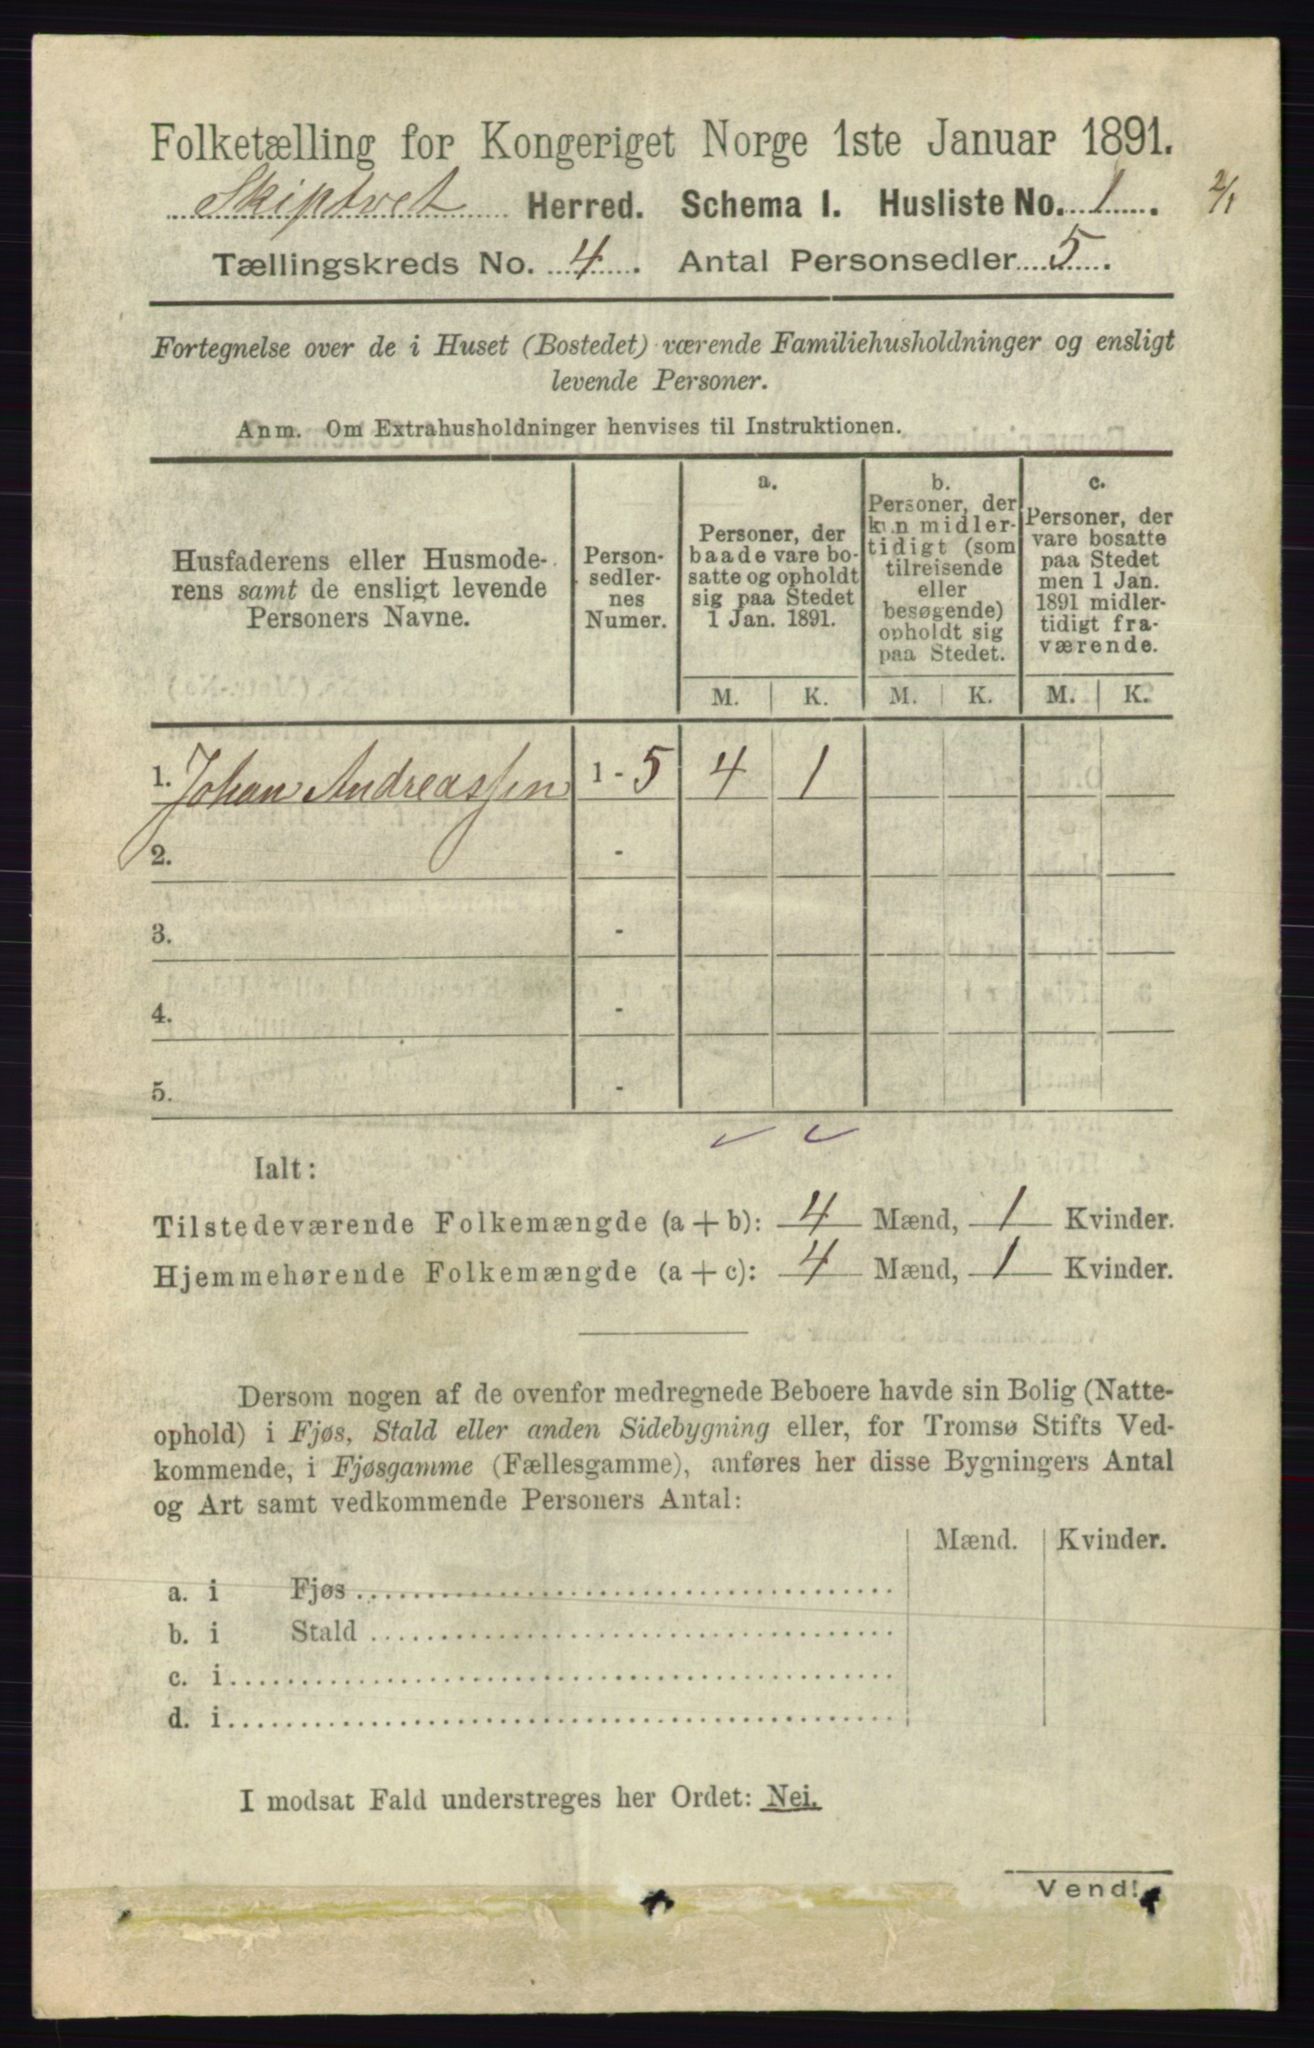 Folketælling for Kongeriget Norge 1ste Januar 1891.
Skiptvet Herred. Schema I. Husliste No. 1. 2/1
Tællingskreds No. 4. Antal Personsedler 5.
Fortegnelse over de i Huset (Bostedet) værende Familiehusholdninger og ensligt
levende Personer.
Anm. Om Extrahusholdninger henvises til Instruktionen.
Husfaderens eller Husmode-
rens samt de ensligt levende
Personers Navne.
Person-
sedler-
nes
Numer.
a.
Personer, der
baade vare bo-
satte og opholdt
sig paa Stedet
1 Jan. 1891.
b.
Personer, der
kun midler-
tidigt (som
tilreisende
eller
besøgende)
opholdt sig
paa Stedet.
c.
Personer, der
vare bosatte
paa Stedet
men 1 Jan.
1891 midler-
tidigt fra-
værende.
M. K. M. K. M. K.
1. Johan Andreassen 1 - 5 4 1
2. -
3. -
4. -
5. -
Ialt:
Tilstedeværende Folkemængde (a + b): 4 Mænd, 1 Kvinder.
Hjemmehørende Folkemængde (a + c): 4 Mænd, 1 Kvinder.
Dersom nogen af de ovenfor medregnede Beboere havde sin Bolig (Natte-
ophold) i Fjøs, Stald eller anden Sidebygning eller, for Tromsø Stifts Ved-
kommende, i Fjøsgamme (Fællesgamme), anføres her disse Bygningers Antal
og Art samt vedkommende Personers Antal:
Mænd. Kvinder.
a. i Fjøs
b. i Stald
c. i
d. i
I modsat Fald understreges her Ordet: Nei.
Vend!